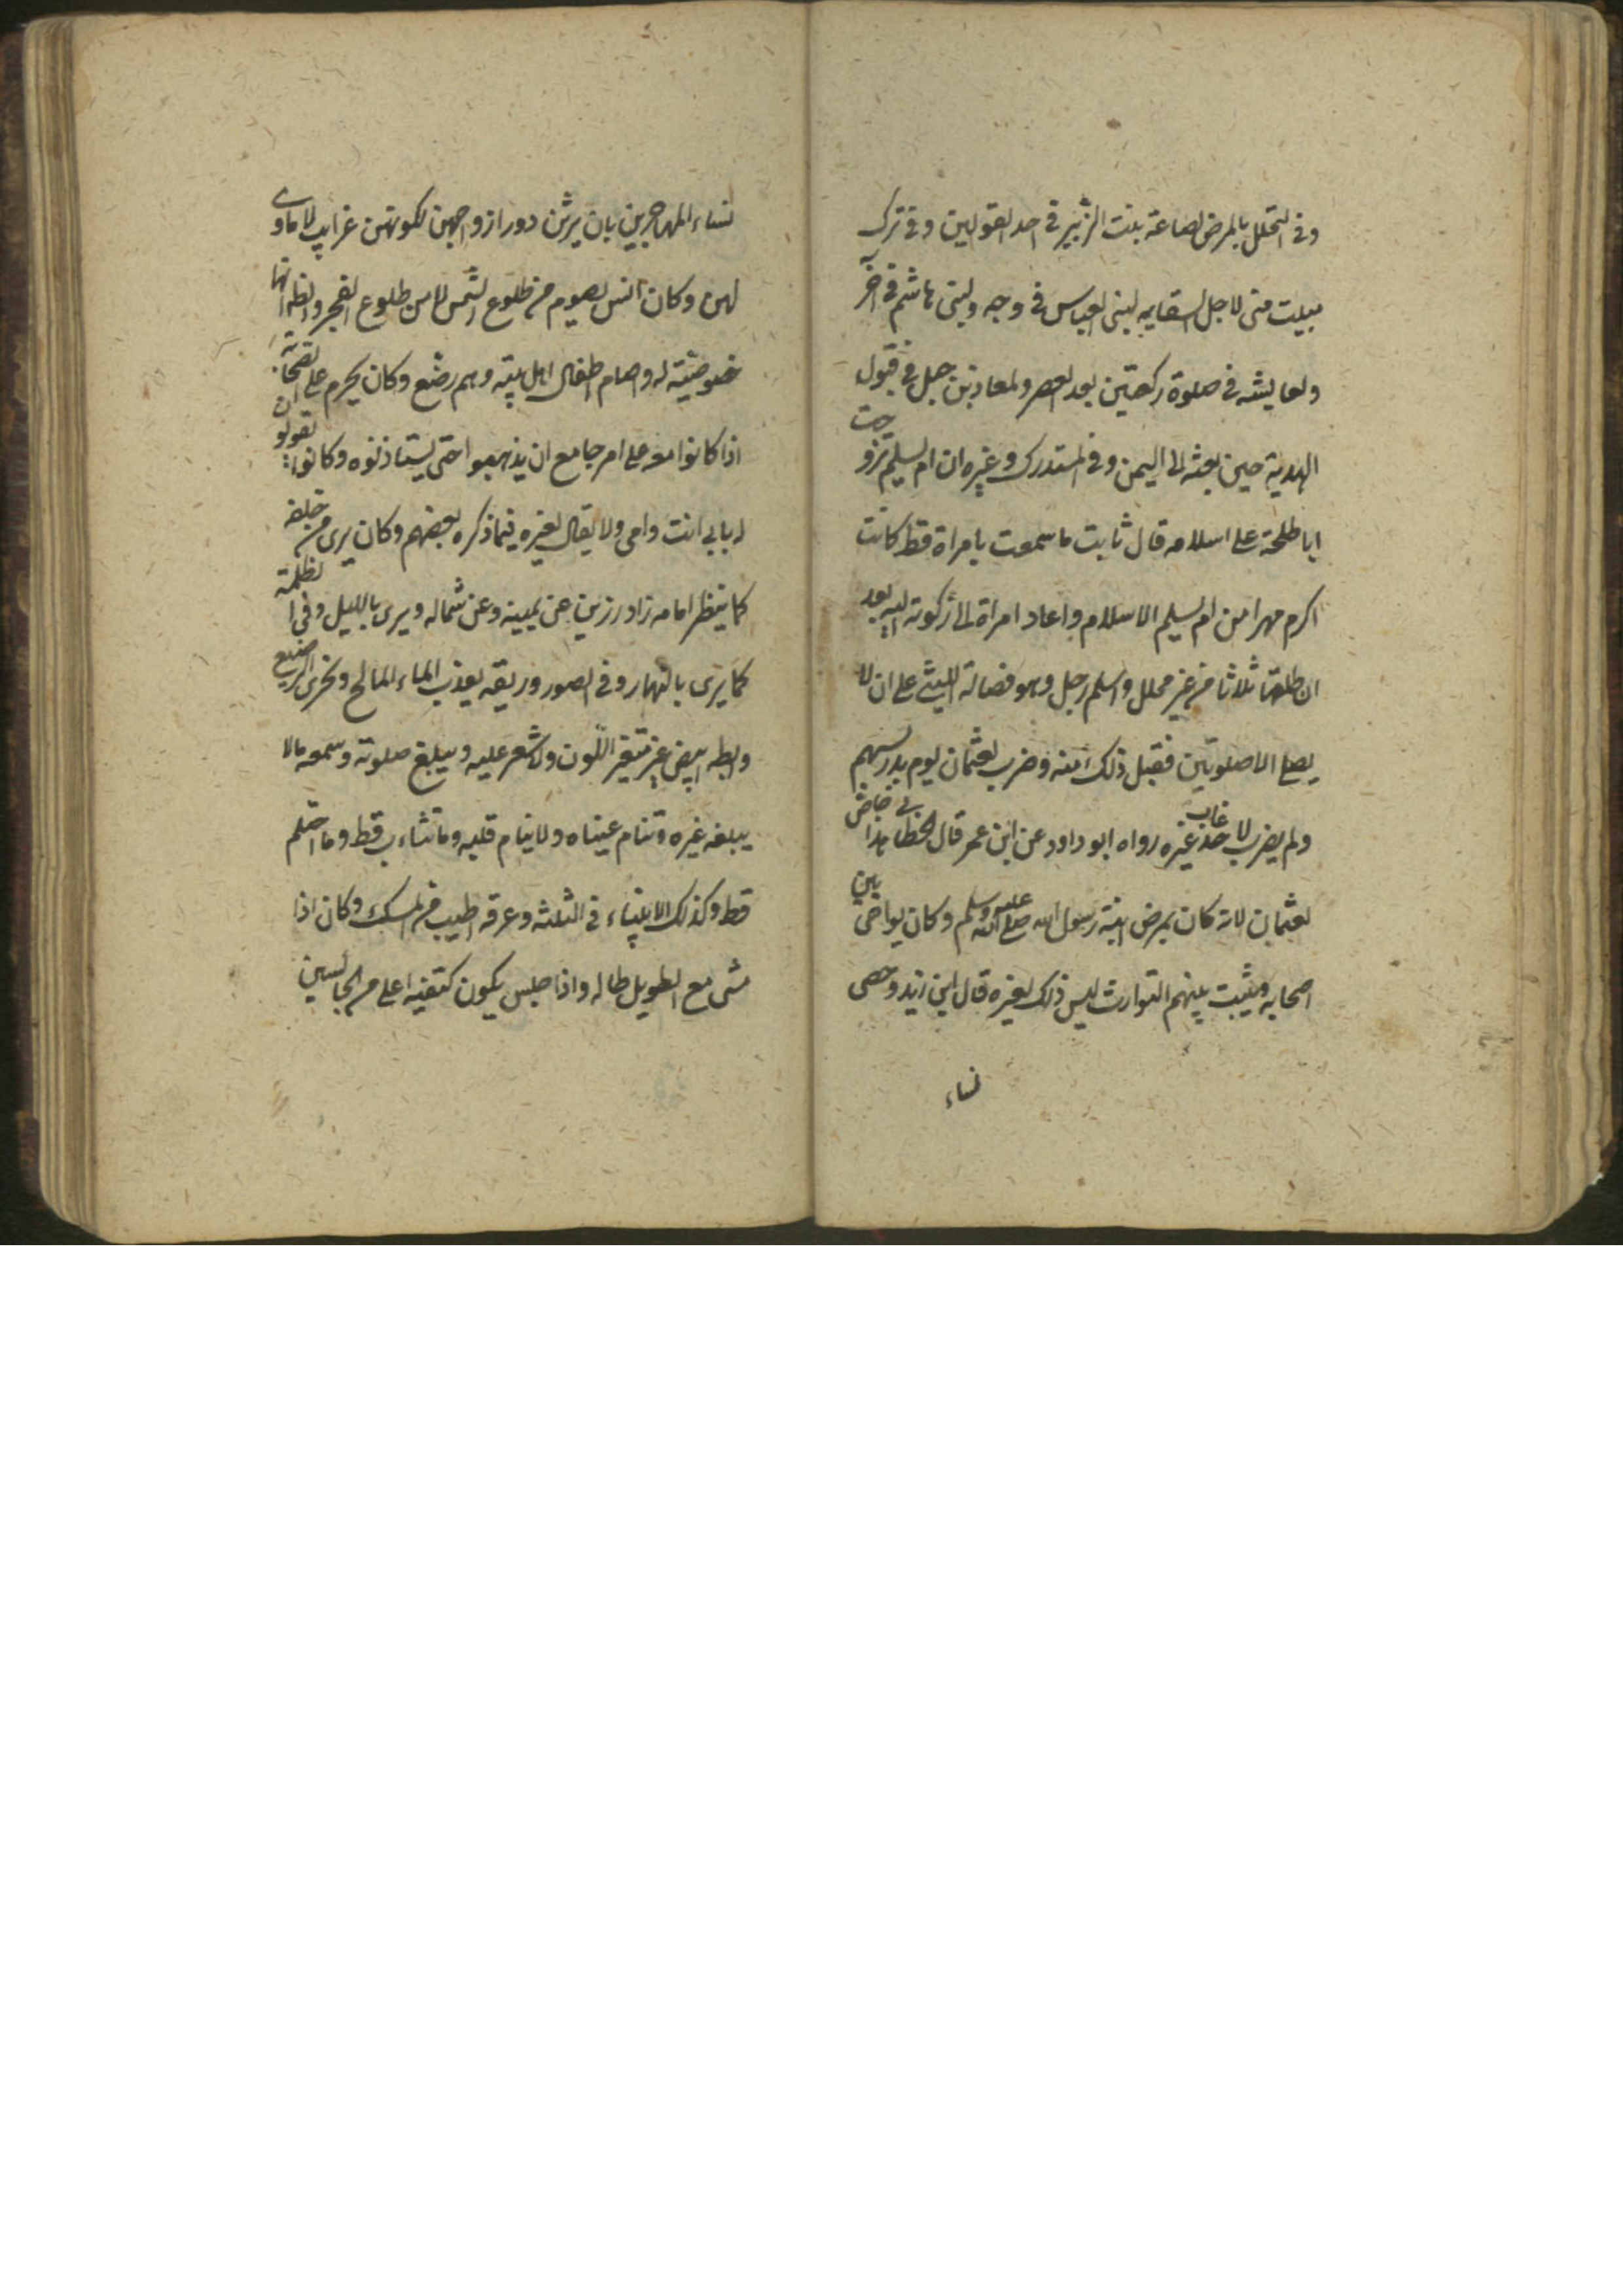 وفى التحلل بالمرض لضاعة بنت الزبير فى احد القولين وفى ترك
مبيت منى لاجل السقايه لبنى العباس فى وجه ولبنى هاشم فى آخر
ولعايشه فى صلوة ركعتين بعد العصر ولمعاذ بن جبل فى قبول
الهدية حين بعثه الى اليمن وفى المستدرك وغيره ان ام سليم تزوجت
ابا طلحة على اسلامه قال ثابت ما سمعت بامراة قط كانت
اكرم مهرا من ام سليم الاسلام واعاد امراة الى ركونه اليه بعد
ان طلقها ثلاثا من غير محلل واسلم رجل وهو فضالة الليثى على ان لا
يصلى الا صلوتين فقبل ذلك منه وضرب لعثمان يوم بدر بسهم
ولم يضرب لاحد غاب غيره رواه ابو داود عن ابن عمر قال الخطابى هذا خاص
لعثمان لانه كان يمرض ابنة رسول الله صلى الله عليه وسلم وكان يواخى بين
اصحابه ويثبت بينهم التوارث ليس ذلك لغيره قال ابن زيد وخصى
نساء
نساء المهاجرين بان يرثن دور ازواجهن لكونهن غرايب لا ماوى
لهن وكان انس يصوم من طلوع الشمس لا من طلوع الفجر والظ انها
خصوصيته له واصام اطفال اهل بيته وهم رضع وكان يحرم على الصحابة
اذا كانوا معه على امر جامع ان يذهبوا حتى يستاذنوه وكانوا يقولون
له بابى انت وامى ولا يقال لغيره فيما ذكره بعضهم وكان يرى من خلفه
كما ينظر امامه زاد رزين عن يمينه وعن شماله ويرى بالليل وفى الظلمة
كما يرى بالنهار وفى الصور وريقه يعذب الماء المالح ويجزى الرضيع
وابطه ابيض غير متغير اللون ولا شعر عليه ويبلغ صلوته وسمعه مالا
يبلغه غيره وتنام عيناه ولا ينام قلبه وما تثاءب قط وما احتلم
قط وكذلك الانبياء فى الثلثة وعرقه اطيب من المسك وكان اذا
مشى مع الطويل طاله واذا جلس يكون كتفيه اعلى من الجالسين